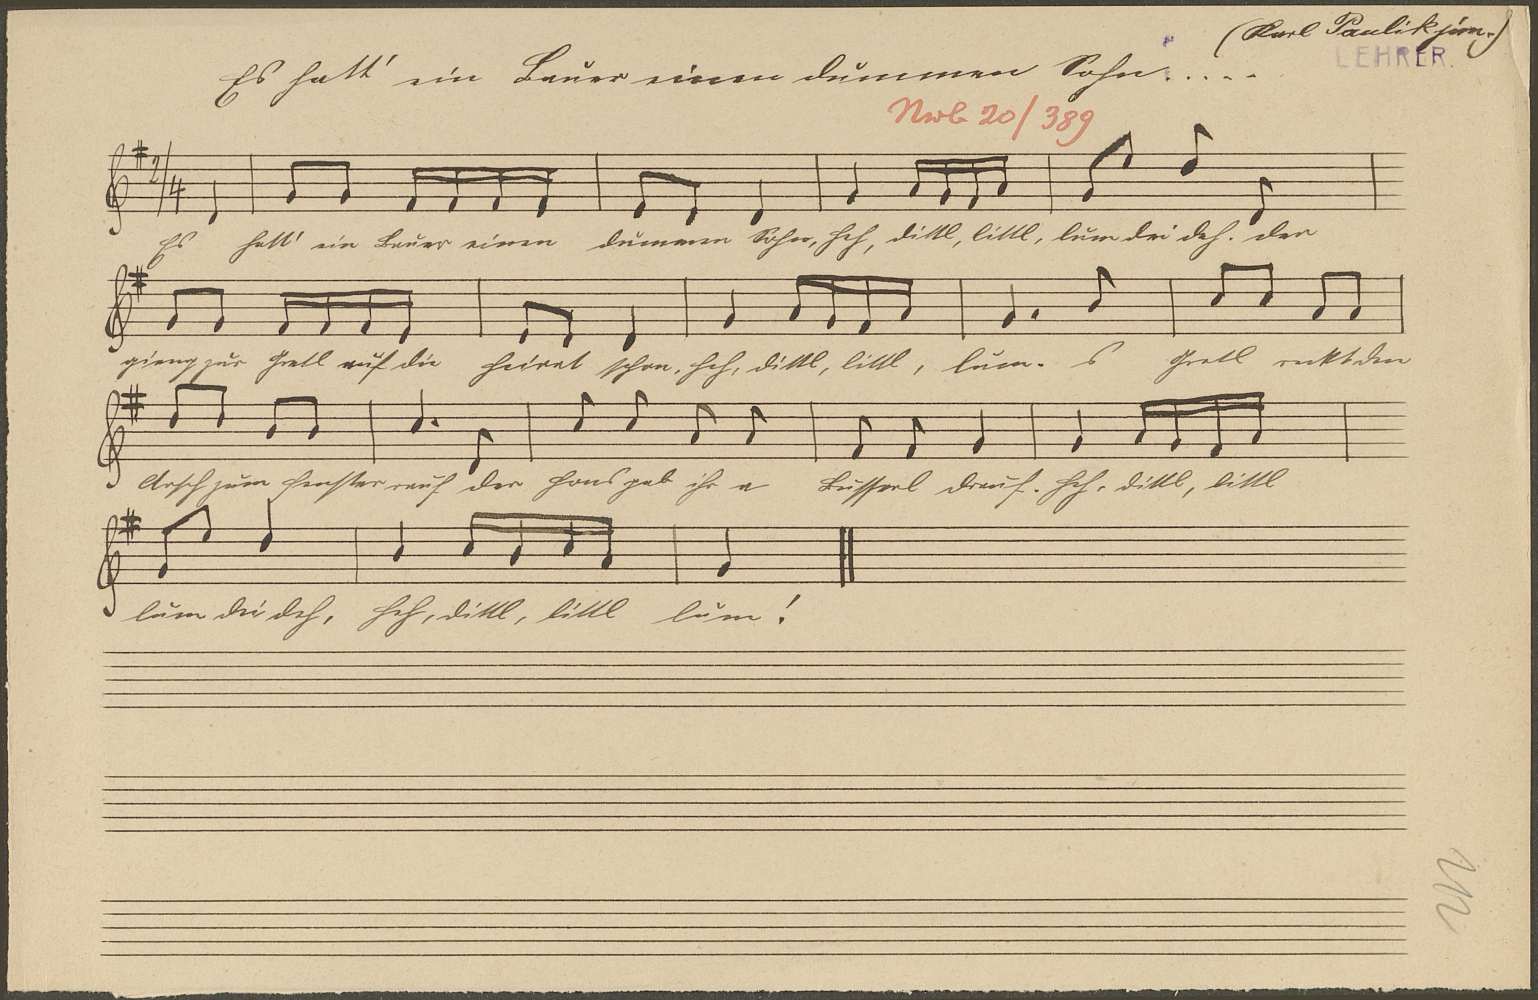 (Karl Paulik jun.)
LEHRER.
Es hatt' ein Bauer einen dummen Sohn.....
Nwb 20/389
2/4
Es hatt' ein Bauer einen dummen Sohn, heh, dittl, littl, lum dei deh. der
gieng zur Gretl auf die Heirat schon, heh, dittl, littl, lum. s Gretl reckt den
Arsch zum Fenster rauf der Hans gab ihr a Busserl drauf. Heh, dittl, littl
lum dei deh, heh, dittl, littl lum!